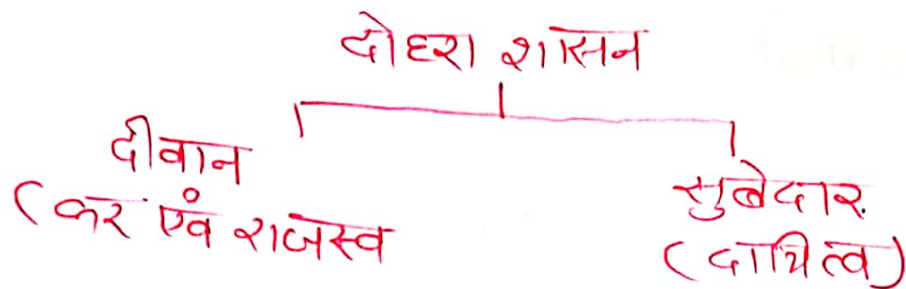 दोहरा शासन
दीवान
(कर एवं राजस्व
सुबेदार
(दायित्व)